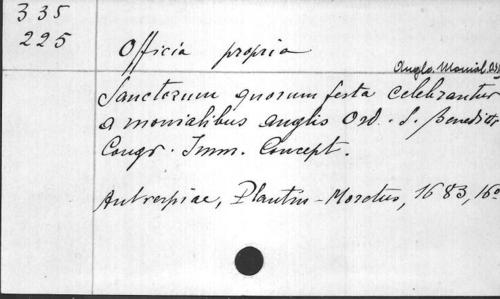 335
225
Officia propria
Anglo. Monial. Oss
Sanctorum quorum festa celebrantur
a monialibus anglis Ord. S. Benedicti
Congr. Imm. Concept.
Antverpiae, Plantin-Moretus, 1683, 16o